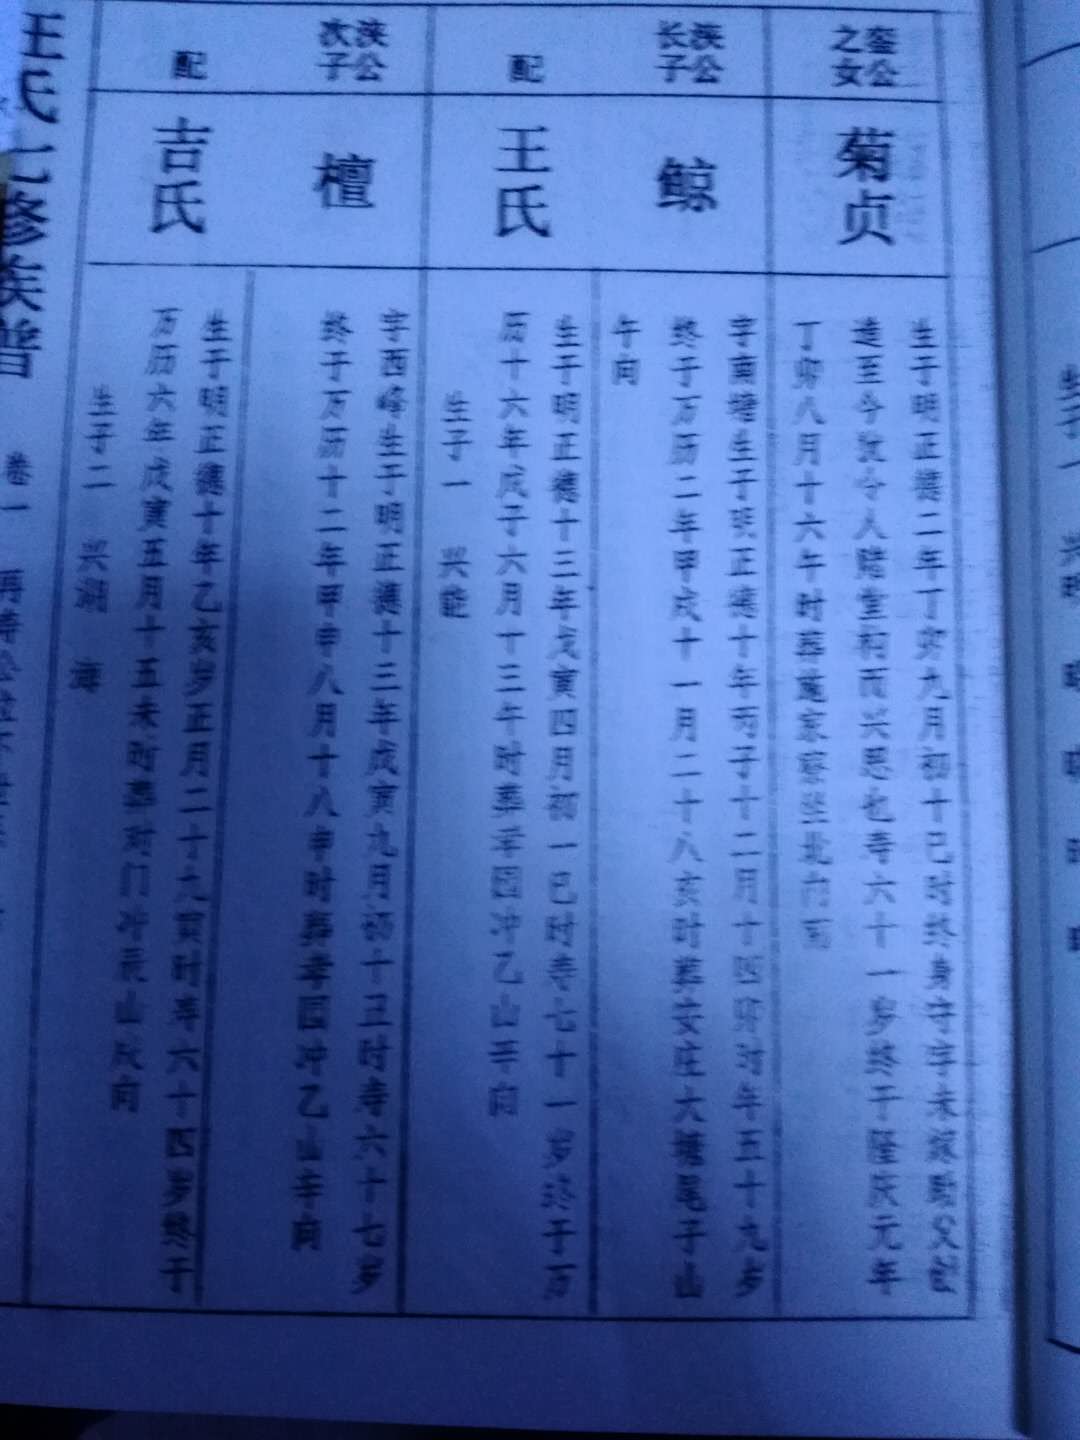 銮公
之女
菊贞
生于明正德二年丁卯九月初十巳时终身守字未嫁助父创
造至今犹令人睹堂构而兴思也寿六十一岁终于隆庆元年
丁卯八月十六午时葬施家寮坐北向南
浃公
长子
鲸
字南塘生于明正德十年丙子十二月十四卯时年五十九岁
终于万历二年甲戌十一月二十八亥时葬安庄大塘尾子山
午向
配
王氏
生于明正德十三年戊寅四月初一巳时寿七十一岁终于万
历十六年戊子六月十三午时葬幸园冲乙山辛向
生子一 兴能
浃公
次子
檀
字西峰生于明正德十三年戊寅九月初十丑时寿六十七岁
终于万历十二年甲申八月十八申时葬幸园冲乙山辛向
配
吉氏
生于明正德十年乙亥岁正月二十九寅时寿六十四岁终于
万历六年戊寅五月十五未时葬对门冲辰山戌向
生子二 兴潮 海
王氏七修族谱 卷一
生子一